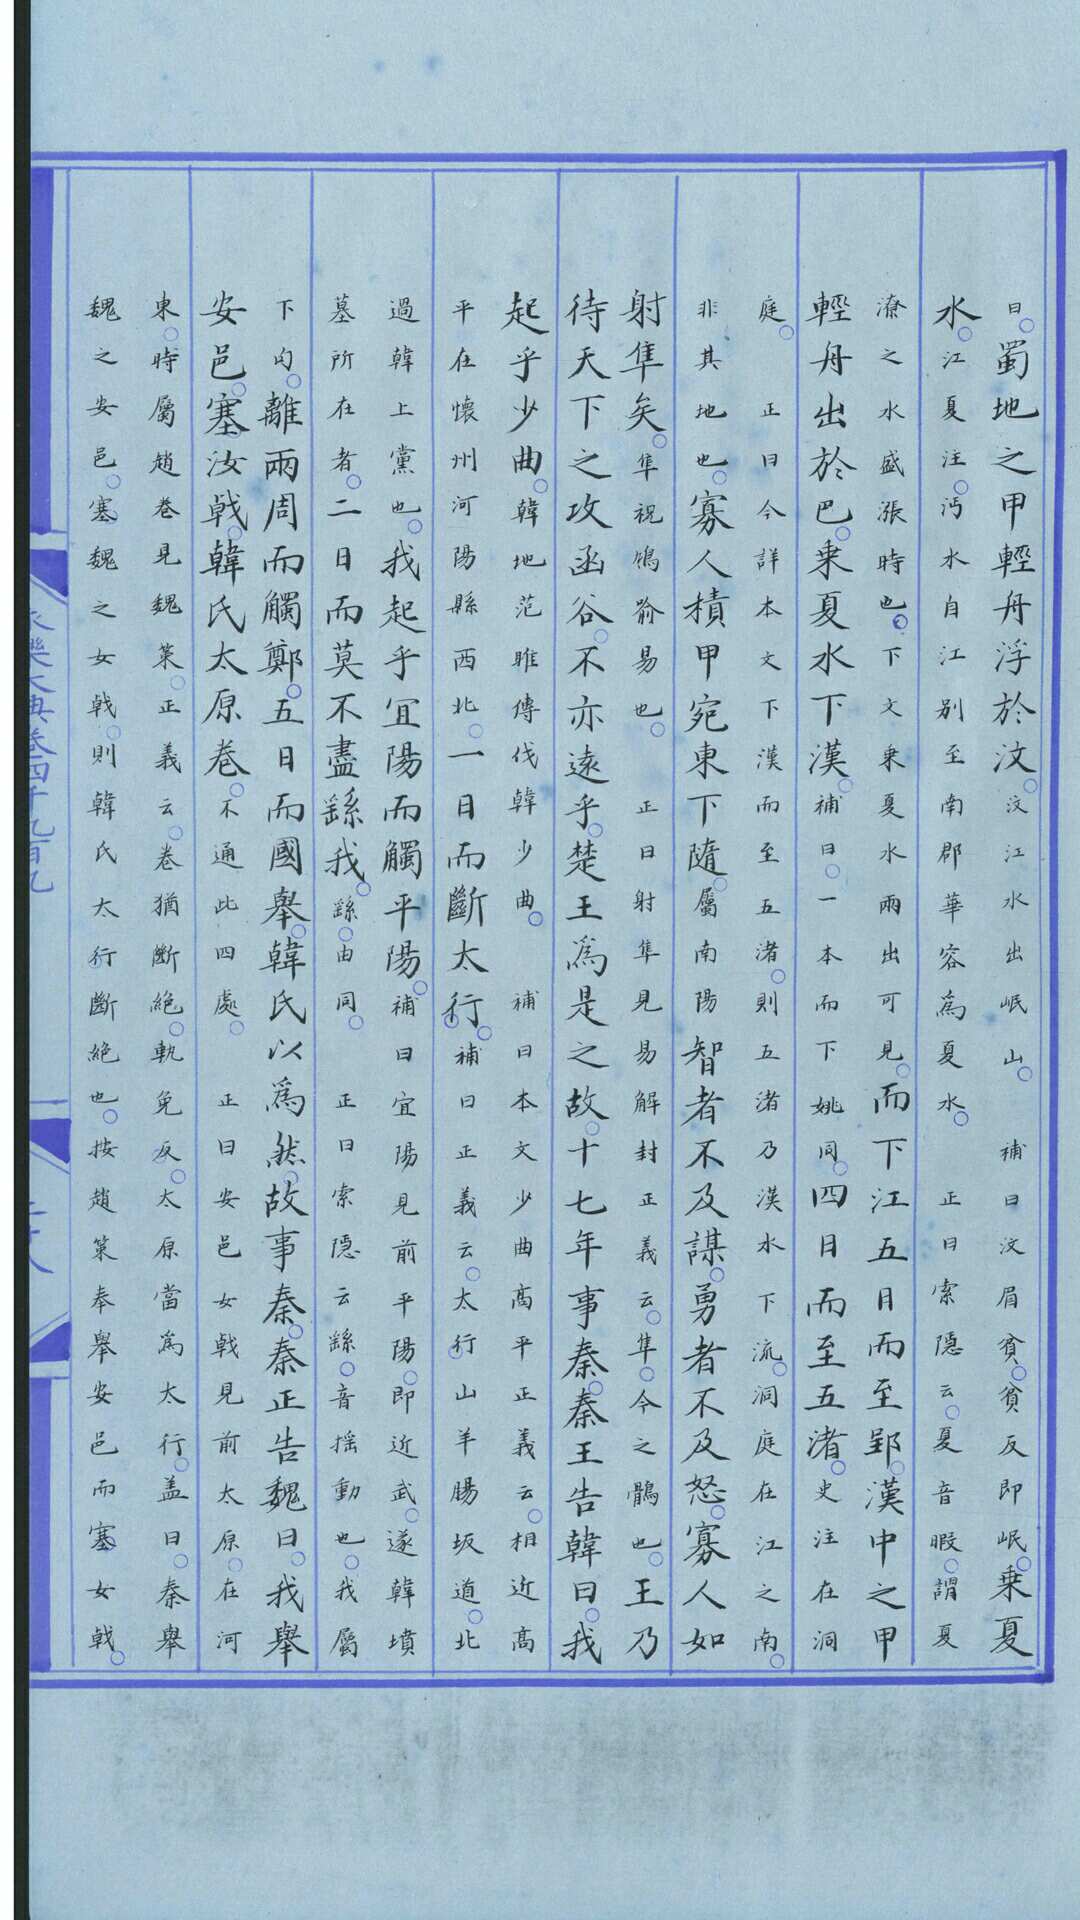 曰。蜀地之甲輕舟浮於汶。汶江水出岷山。 補曰汶眉貧。貧反即岷。乗夏
水。江夏注。沔水自江别至南郡華容爲夏水。 正曰索隠云。夏音暇。謂夏
潦之水盛漲時也。下文乗夏水兩出可見。而下江五日而至郢。漢中之甲
輕舟出於巴。乗夏水下漢。補曰。一本而下姚同。四日而至五渚。史注在洞
庭。 正曰今詳本文下漢而至五渚。則五渚乃漢水下流。洞庭在江之南。
非其地也。寡人積甲宛東下隨。屬南陽智者不及謀。勇者不及怒。寡人如
射隼矣。隼祝鳩喻易也。 正曰射隼見易解封正義云。隼。今之鶻也。王乃
待天下之攻函谷。不亦遠乎。楚王爲是之故。十七年事秦。秦王告韓曰。我
起乎少曲。韓地范睢傳伐韓少曲。 補曰本文少曲髙平正義云。相近髙
平在懷州河陽縣西北。一日而斷太行。補曰正義云。太行山羊腸坂道。北
過韓上黨也。我起乎宜陽而觸平陽。補曰宜陽見前平陽。即近武。遂韓墳
墓所在者。二日而莫不盡繇我。繇。由同。 正曰索隠云繇。音揺動也。我屬
下句。離兩周而觸鄭。五日而國舉。韓氏以爲然。故事秦。秦正告魏曰。我舉
安邑。塞汝戟。韓氏太原卷。不通此四處。 正曰安邑女戟見前太原。在河
東。時屬趙卷見魏策。正義云。卷猶斷絶。軌免反。太原當爲太行。盖曰。秦舉
魏之安邑。塞魏之女戟。則韓氏太行斷絶也。按趙策奉舉安邑而塞女戟。
永樂大典卷四千九百九
二十八